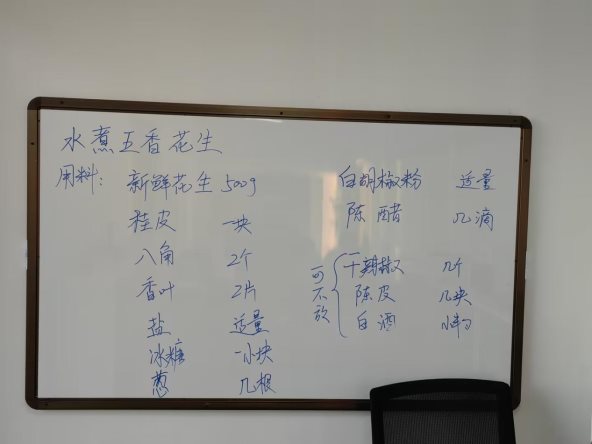 水煮五香花生
用料: 新鲜花生 500g
桂皮 一块
八角 2个
香叶 2片
盐 适量
冰糖 一小块
葱 几根
白胡椒粉 适量
陈醋 几滴
可不放
干辣椒 几个
陈皮 几块
白酒 小半勺